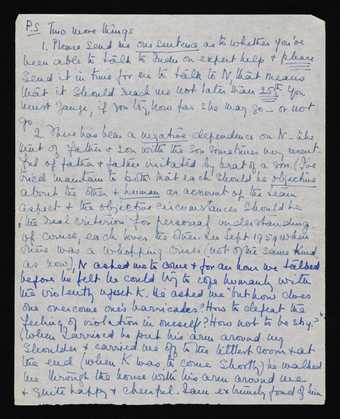 P.S Two more things
1. Please send me one sentence as to whether you've
been able to talk to Indu on expert help & please
send it in time for me to talk to N, that means
that it should reach me not later than 25th. You
must gauge, if you try, how far she may go – or not
go.
2. There has been a negative dependence on N – the
hurt of father & son with the son sometimes
ful of father & father irritated by
tried maintain to both that each should be objective
about the other & human on account of the
aspect & the objective circumstances should be
the real criterion for personal understanding.
Of course, each loves the other. In Sept 1959 when
there was a whopping crisis (not of the same kind
as now), N asked me to come & for an hour we talked
before he felt he could try to cope humanly with
the violently upset K. He asked me "but how does
one overcome one's barricades? How to defeat the
feeling of violation in oneself? How not to be shy."
(When I arrived he put his arm around my
shoulder & carried me off to the littlest room & at
the end (when K was to come shortly) he walked
me through the house with his arm around me
& quite happy & cheerful. I am extremely fond of him